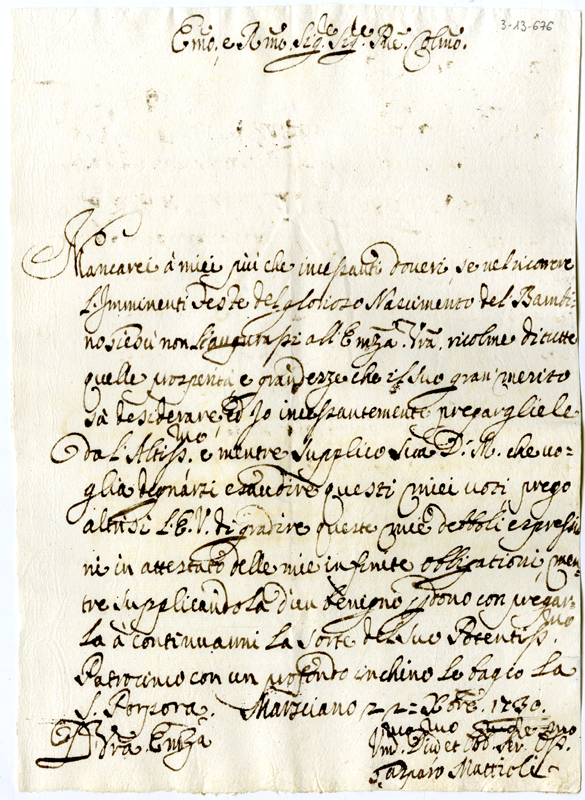 3-13-676
Emo, e Rmo. Sigr. Sigr. Pne. Colmo.
Mancarei à miei più che incessanti doveri, se nel ricorrere
l'Imminenti Feste del glorioso Nascimento del Bambi-
no Giesù non l'augurassi all'Emza. Vra. ricolme di tutte
quelle prosperità e grandezze che il suo gran merito
sà desiderare, ed Io incessantemente pregargliele
da l'Altissmo, e mentre supplico Sua D: M. che vo-
glia degnarsi esaudire questi miei voti prego
altresi l'E. V. di gradire queste mie debboli espressio
ni in attestato delle mie infinite obbligationi, men-
tre supplicandola d'un benigno perdono con pregar-
la à continuarmi la sorte del suo Potentissmo.
Patrocinio con un profondo inchino le bagio la
S. Porpora. Marsciano 22 Xbre. 1730.
D. Vra. Emza
Umo. Divmo et Obb. Ser. Ossmo.
Gasparo Mattioli